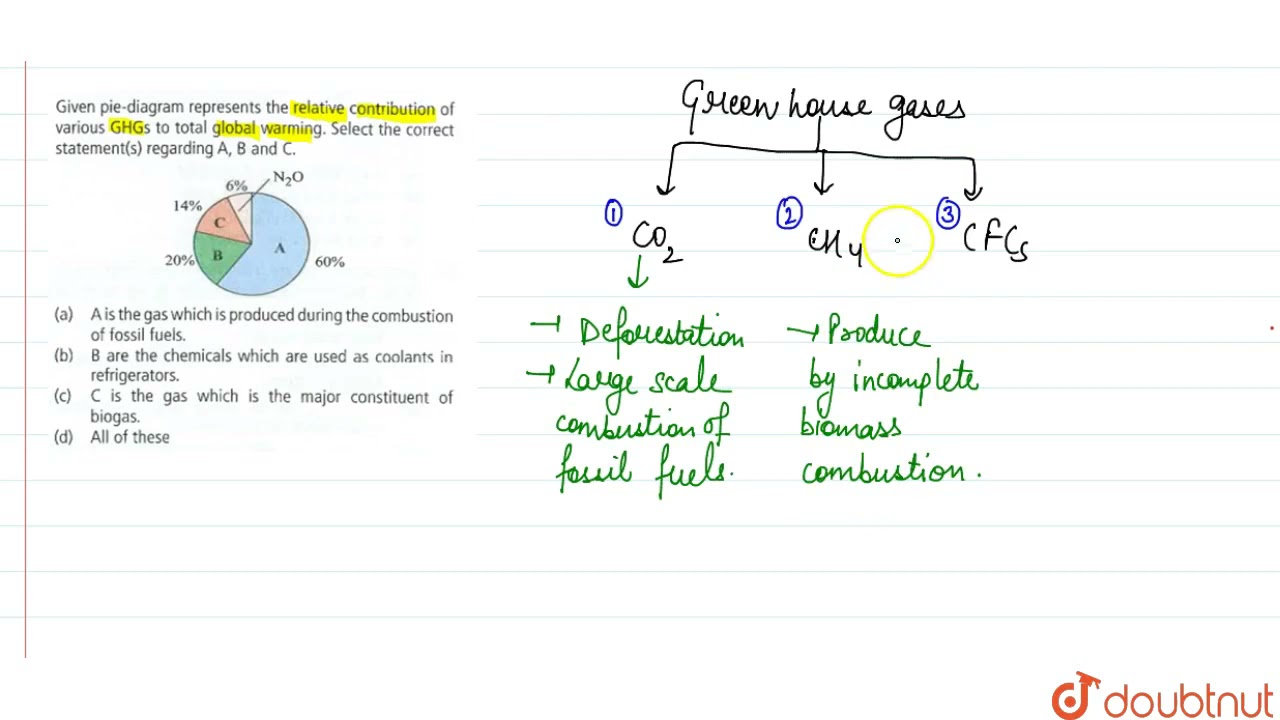 Given pie-diagram represents the relative contribution of
various GHGs to total global warming. Select the correct
statement(s) regarding A, B and C.
6%
N₂O
14%
C
A
20%
B
60%
(a) A is the gas which is produced during the combustion
of fossil fuels.
(b) B are the chemicals which are used as coolants in
refrigerators.
(c) C is the gas which is the major constituent of
biogas.
(d) All of these
Green house gases
① CO₂
② CH4
③ CFCs
→ Deforestation
→ Large scale
combustion of
fossil fuels.
→ Produce
by incomplete
biomass
combustion.
doubtnut